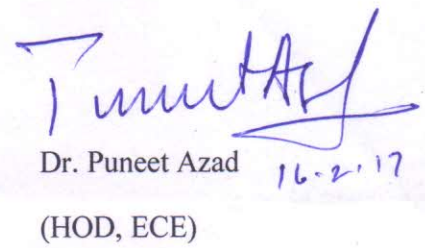 Puneet Azad
Dr. Puneet Azad 16.2.17
(HOD, ECE)